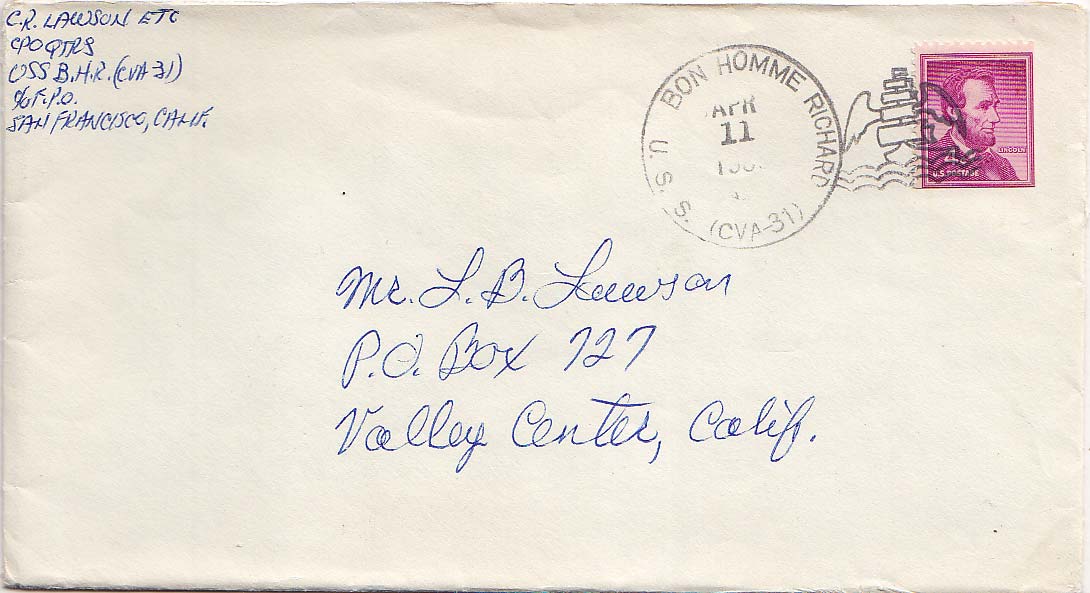 C.R. LAWSON ETC
CPO QTRS
USS B.H.R. (CVA-31)
℅ F.P.O.
SAN FRANCISCO, CALIF.
U.S.S. BON HOMME RICHARD (CVA-31)
APR
11
LINCOLN
U.S. POSTAGE
Mr. L. B. Lawson
P.O. Box 727
Valley Center, Calif.